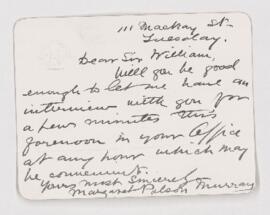 111 Mackay St.
Tuesday.
Dear Sir William,
Will you be good
enough to let me have an
interview with you for
a few minutes this
forenoon in your office
at any hour which may
be convenient.
Yours most sincerely
Margaret Polson Murray